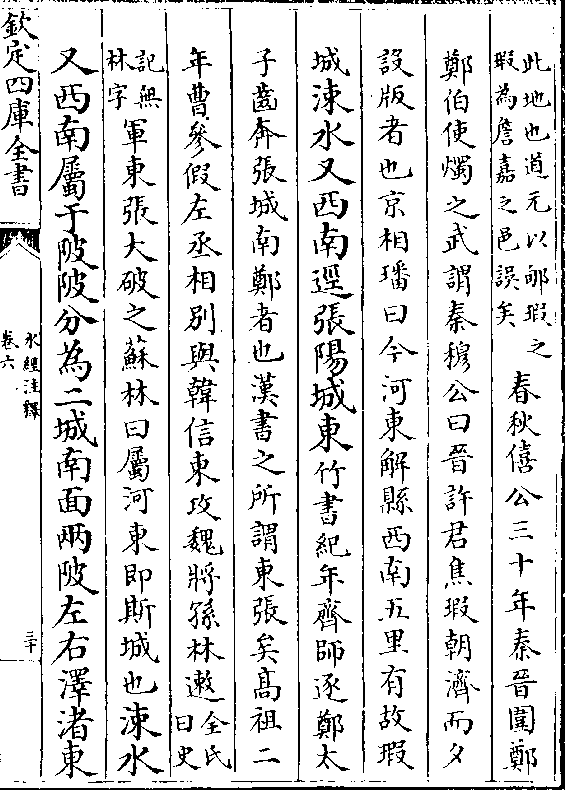 此地也道元以郇瑕之
瑕為詹嘉之邑誤矣
春秋僖公三十年秦晉圍鄭
鄭伯使燭之武謂秦穆公曰晉許君焦瑕朝濟而夕
設版者也京相璠曰今河東解縣西南五里有故瑕
城涑水又西南逕張陽城東竹書紀年齊師逐鄭太
子齒奔張城南鄭者也漢書之所謂東張矣高祖二
年曹參假左丞相別與韓信東攻魏將孫林遬全氏
曰史
記無
林字
軍東張大破之蘇林曰屬河東即斯城也涑水
又西南屬于陂陂分為二城南面兩陂左右澤渚東
欽定四庫全書
水經注釋
卷六
三十